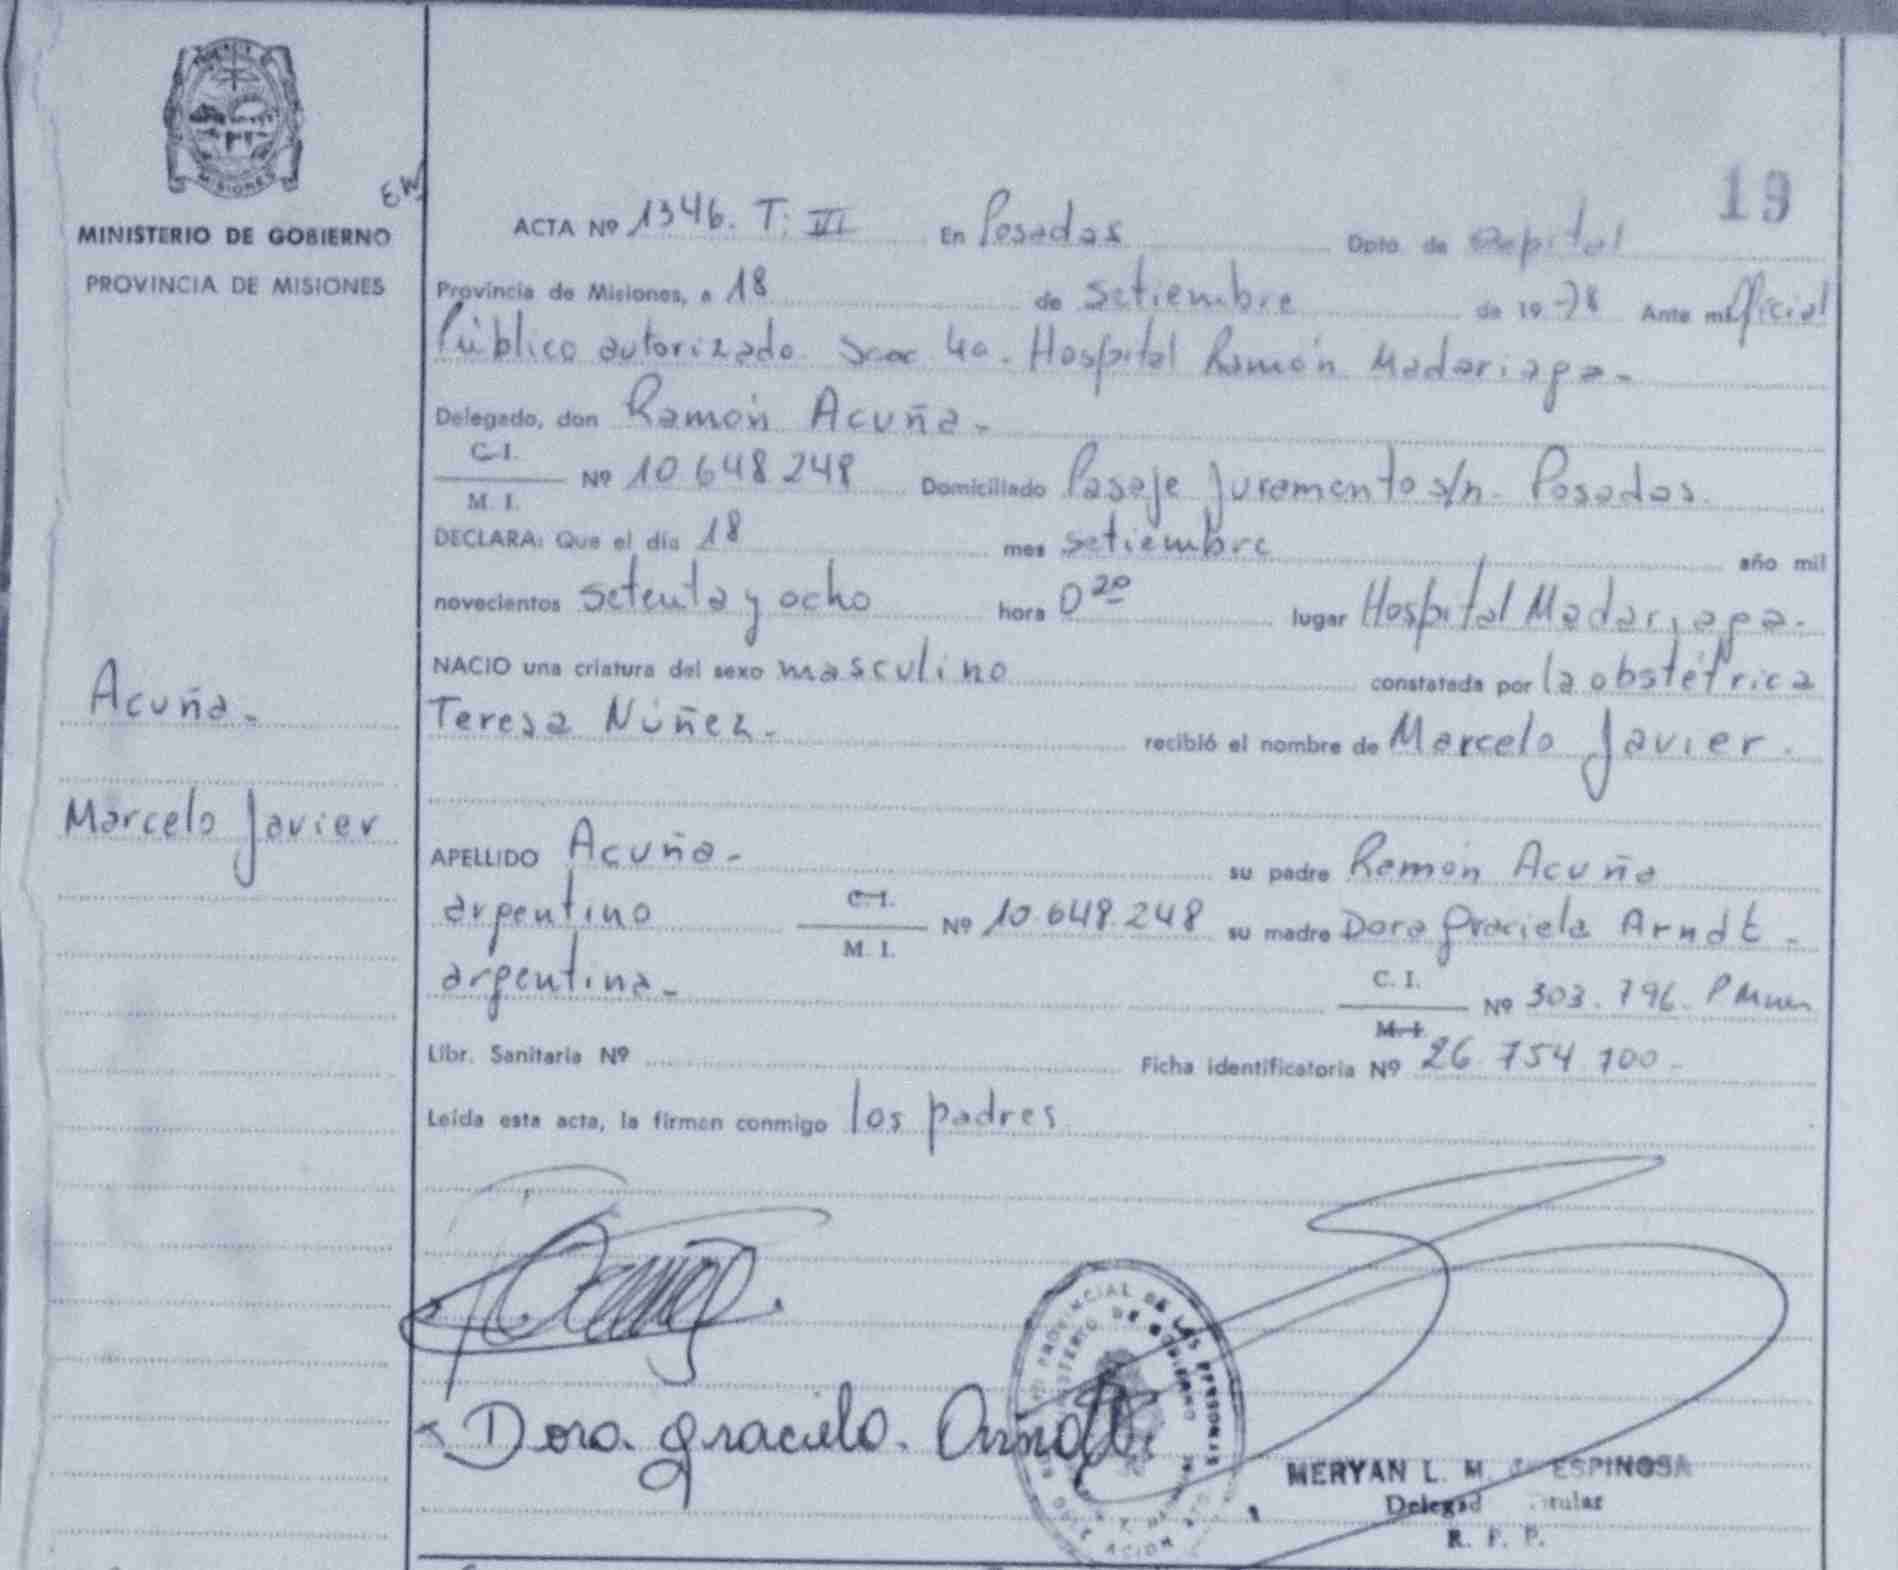 MISIONES
MINISTERIO DE GOBIERNO
PROVINCIA DE MISIONES
19
ACTA Nº 1346. T: VI En Posadas Dpto. de Capital
Provincia de Misiones, a 18 de setiembre de 19 78 Ante mi Oficial
Público autorizado Secc 4a. Hospital Ramón Madariaga.
Delegado, don Ramón Acuña.
C.I.
M. I. Nº 10 648 248 Domiciliado Pasaje Juramento s/n. Posadas.
DECLARA: Que el día 18 mes setiembre año mil
novecientos setenta y ocho hora 0 20 lugar Hospital Madariaga.
NACIO una criatura del sexo masculino constatada por la obstétrica
Teresa Núñez. recibió el nombre de Marcelo Javier.
Acuña.
Marcelo Javier
APELLIDO Acuña. su padre Ramón Acuña
argentino C.I. M. I. Nº 10.648.248 su madre Dora Graciela Arndt.
argentina. C. I. M. I. Nº 303.796. P Mnes
Libr. Sanitaria Nº Ficha identificatoria Nº 26 754 100.
Leída esta acta, la firman conmigo los padres
Dora Graciela Arndt
PROVINCIAL DE LAS PERSONAS
MINISTERIO DE GOBIERNO
MERYAN L. M. ESPINOSA
R. P. P.